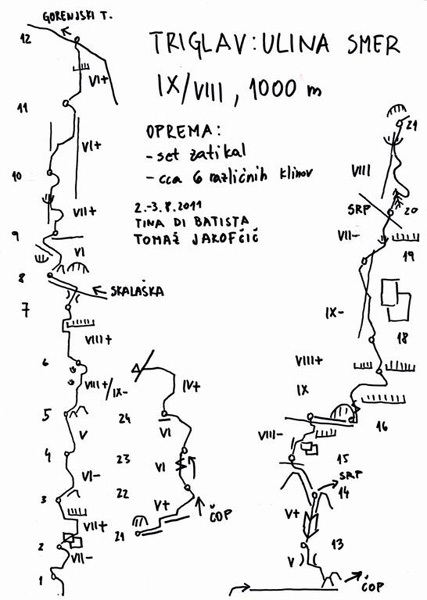 GORENJSKI T.
TRIGLAV: ULINA SMER
IX/VIII, 1000 m
OPREMA:
- set zatikal
- cca 6 različnih klinov
2.-3.8.2011
TINA DI BATISTA
TOMAŽ JAKOFČIČ
12
VI+
11
VI+
10
VII+
9
VI
8
SKALAŠKA
7
VIII+
6
VIII+/IX-
5
V
4
VI-
3
VII+
2
VII-
1
IV+
24
VI
23
VI
22
V+
ČOP
21
21
VIII
SRP
20
VII-
19
IX-
18
VIII+
IX
16
VIII-
15
SRP
14
V+
13
V
ČOP